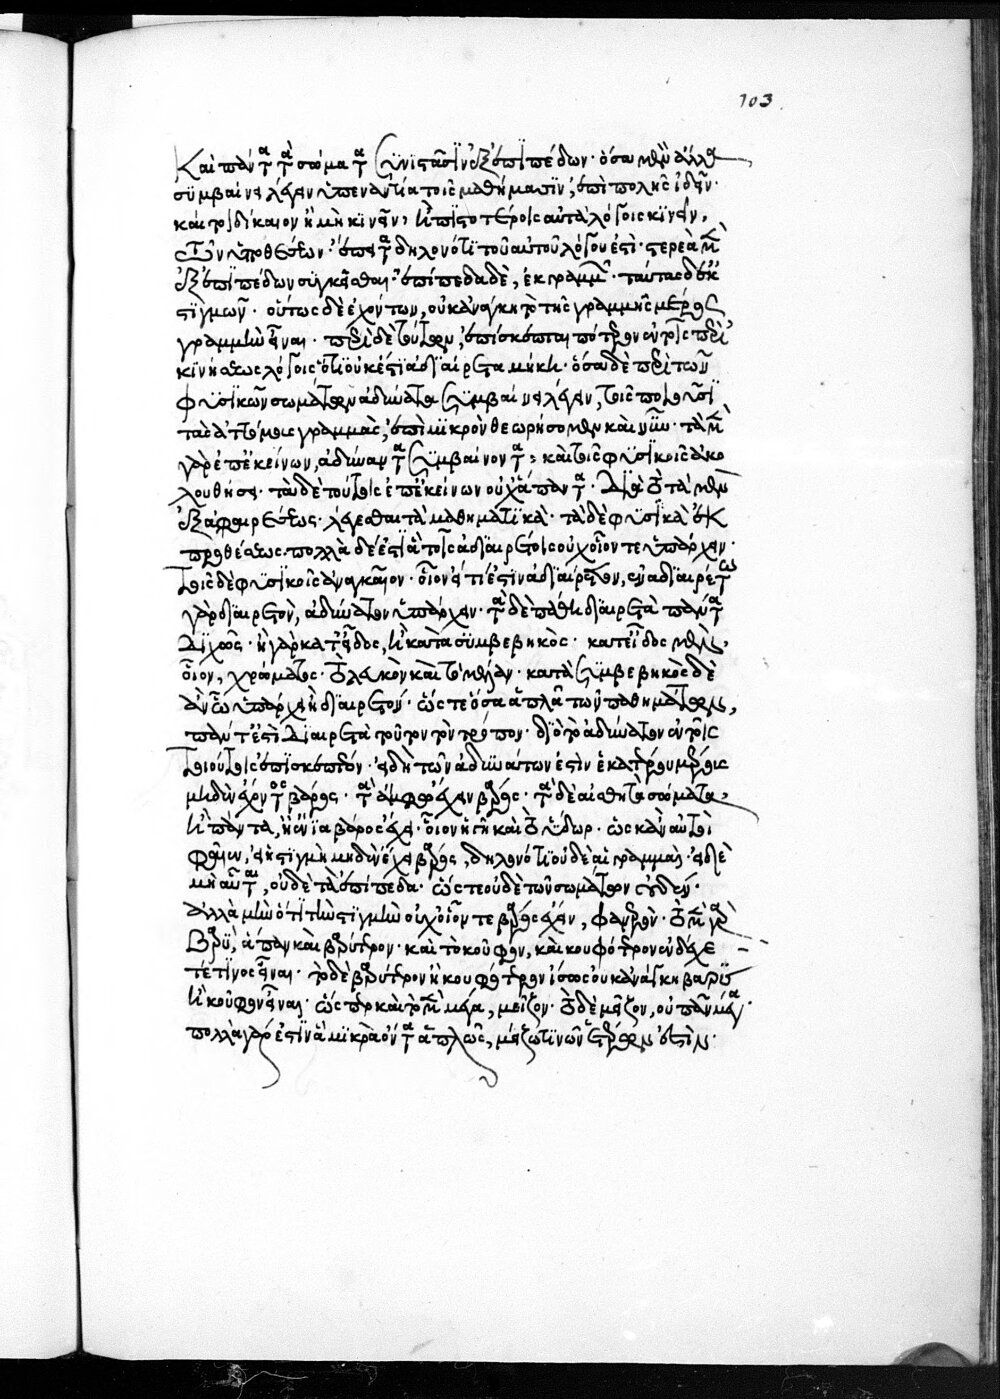 Καὶ πάντα τὰ σώματα συνιστᾶσιν ἐξ ἐπιπέδων· ὅσα μὲν οὖν ἄλλα
συμβαίνει λέγειν ὑπεναντία τοῖς μαθήμασιν, ἐπιπολῆς ἰδεῖν·
καίτοι δίκαιον ἢ μὴ κινεῖν, ἢ πιστοτέροις αὐτὰ λόγοις κινεῖν,
τῶν ὑποθέσεων· ἔπειτα δηλονότι τοῦ αὐτοῦ λόγου ἐστὶ στερεὰ μὲν
ἐξ ἐπιπέδων συγκεῖσθαι· ἐπίπεδα δὲ, ἐκ γραμμῶν· ταύτας δ' ἐκ
στιγμῶν· οὕτως δὲ ἐχόντων, οὐκ ἀνάγκη τὸ τῆς γραμμῆς μέρος
γραμμὴν εἶναι· περὶ δὲ τούτων, ἐπέσκεπται πρότερον ἐν τοῖς περὶ
κινήσεως λόγοις ὅτι οὐκ ἔστι ἀδιαίρετα μήκη· ὅσα δὲ περὶ τῶν
φυσικῶν σωμάτων ἀδύνατα συμβαίνει λέγειν, τοῖς ποιοῦσι
τὰς ἀτόμους γραμμὰς, ἐπὶ μικρὸν θεωρήσομεν καὶ νῦν· τὰ μὲν
γὰρ ἐπ' ἐκείνων, ἀδύνατα συμβαίνοντα· καὶ τοῖς φυσικοῖς ἀκο
λουθήσει· τὰ δὲ τούτοις ἐπ' ἐκείνων οὐχ ἅπαντα· Διὰ τὸ τὰ μὲν
ἐξ ἀφαιρέσεως λέγεσθαι τὰ μαθηματικά· τὰ δὲ φυσικὰ ἐκ
προσθέσεως· πολλὰ δέ ἐστι ἃ τοῖς ἀδιαιρέτοις οὐχ οἷόν τε ὑπάρχειν·
τοῖς δὲ φυσικοῖς ἀναγκαῖον· οἷον εἴ τί ἐστιν ἀδιαίρετον, ἐν ἀδιαιρέτῳ
γὰρ διαιρετὸν, ἀδύνατον ὑπάρχειν· τὰ δὲ πάθη διαιρετὰ πάντα
Διχῶς· ἢ γὰρ κατ' εἶδος, ἢ κατὰ συμβεβηκός· κατ' εἶδος μὲν,
οἷον, χρώματος· τὸ λευκὸν καὶ τὸ μέλαν· κατὰ συμβεβηκὸς δὲ
ἂν ᾧ ὑπάρχει ᾖ διαιρετόν· ὥστε ὅσα ἁπλᾶ τῶν παθημάτων,
πάντ' ἐστὶ Διαιρετὰ τοῦτον τὸν τρόπον· διὸ τὸ ἀδύνατον ἐν τοῖς
τοιούτοις ἐπισκεπτέον· εἰ δὴ τῶν ἀδυνάτων ἐστὶν ἑκατέρου μέρους
μηδὲν ἔχοντος βάρος· τὰ ἄμφω ἔχειν βάρος· τὰ δὲ αἰσθητὰ σώματα
ἢ πάντα, ἢ ἔνια βάρος ἔχει· οἷον ἡ γῆ καὶ τὸ ὕδωρ· ὡς κἂν αὐτοὶ
φαῖεν, εἰ ἡ στιγμὴ μηδὲν ἔχει βάρος, δηλονότι οὐδὲ αἱ γραμμαί· εἰ δὲ
μὴ αὗται, οὐδὲ τὰ ἐπίπεδα· ὥστε οὐδὲ τῶν σωμάτων οὐδέν·
ἀλλὰ μὴν ὅτι τὴν στιγμὴν οὐχ οἷόν τε βάρος ἔχειν, φανερόν· τὸ μὲν γὰρ
βαρὺ, ἅπαν καὶ βαρύτερον· καὶ τὸ κοῦφον, καὶ κουφότερον ἐνδέχε
ταί τινος εἶναι· τὸ δὲ βαρύτερον ἢ κουφότερον ἴσως οὐκ ἀνάγκη βαρὺ
ἢ κοῦφον εἶναι· ὥσπερ καὶ τὸ μὲν μέγα, μεῖζον· τὸ δὲ μεῖζον, οὐ πᾶν μέγα·
πολλὰ γάρ ἐστιν ἃ μικρὰ ὄντα ἁπλῶς, μείζω τινῶν ἑτέρων ἐστίν·